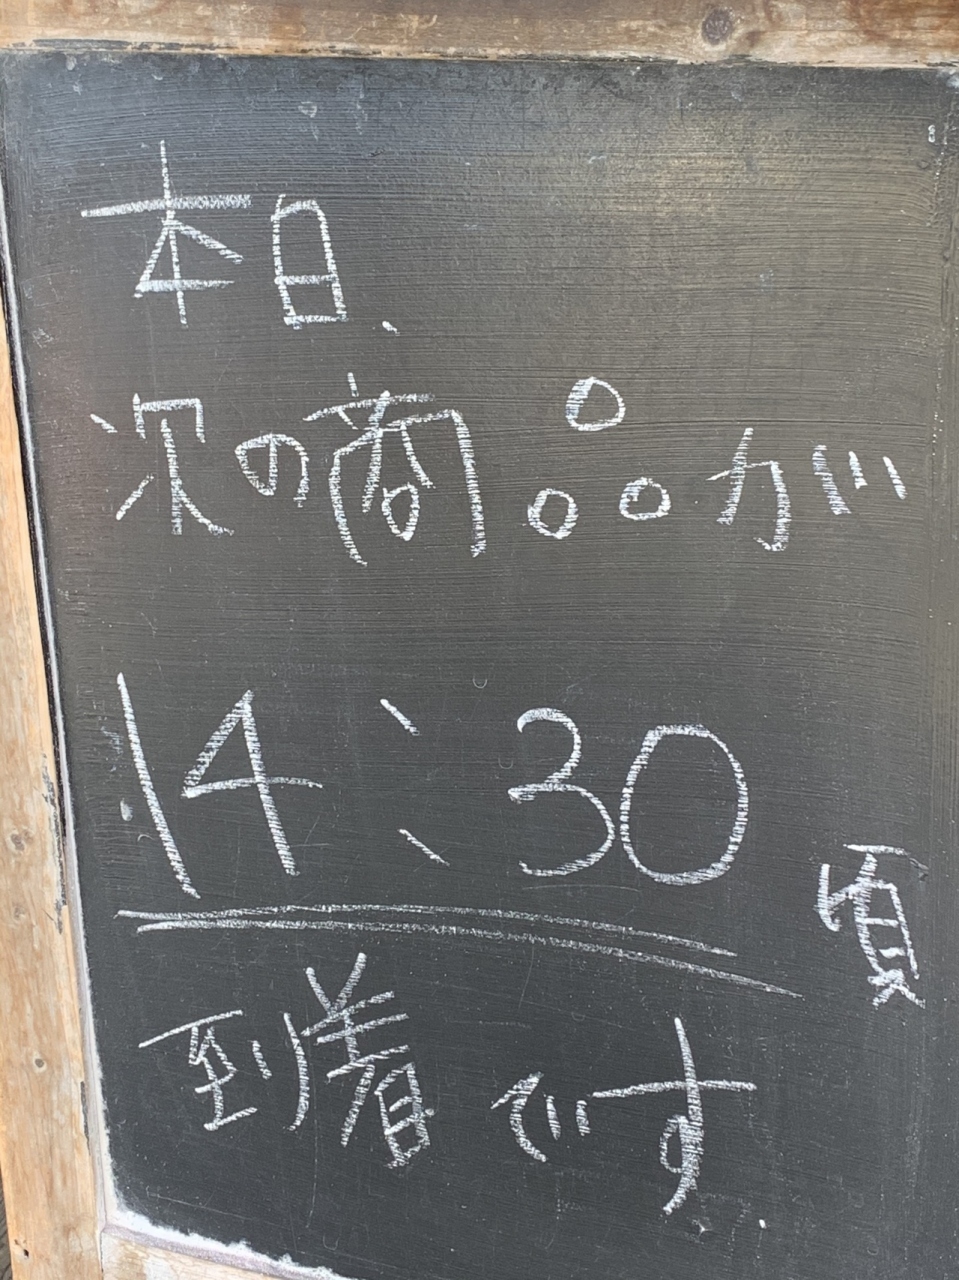 本日、
次の商品が
14:30頃
到着です